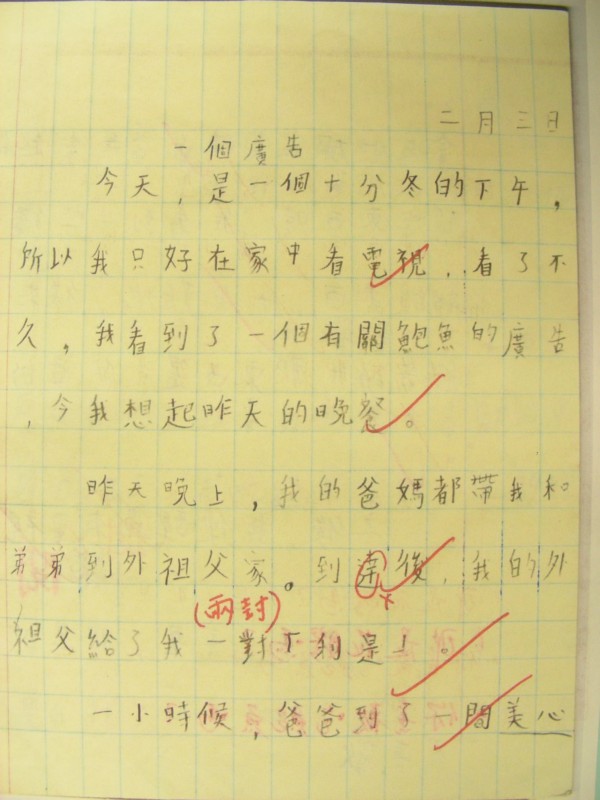 二月三日
一個廣告
今天,是一個十分冬的下午,
所以我只好在家中看電視,看了不
久,我看到了一個有關鮑魚的廣告
,今我想起昨天的晚餐。
昨天晚上,我的爸媽都帶我和
弟弟到外祖父家。到達後,我的外
(兩封)
祖父給了我一對利是。
一小時候,爸爸到了一間美心